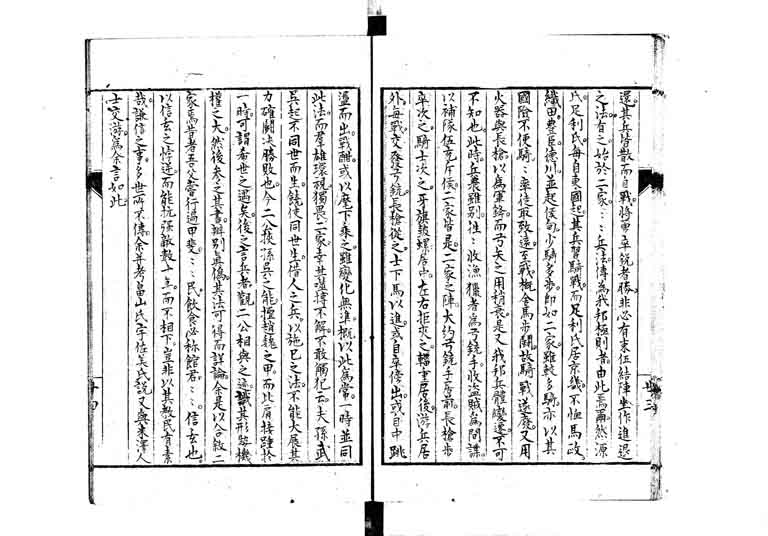 還。其兵皆散而自戰。將卑卒銳者勝。非必有束伍結陣坐作進退
之法。有之。始於二家。二家兵法。傳爲我邦極則者。由此焉爾。然源
氏足利氏。每自東國起。其兵習騎戰。而足利氏居京畿。不恤馬政。
織田豐臣德川。並起侯甸。少騎多步。即如二家。雖較多騎。亦以其
國險不便騎。騎率徒取致遠。至戰。概舍馬步鬪。故騎戰遂廢。又用
火器與長槍。以爲軍鋒。而弓矢之用稍衰。是又我邦兵體變遷。不可
不知也。此時兵農雖別。往往收漁獵者爲弓銃手。收盜賊爲間諜。
以補隊伍充斥候。二家皆是。二家之陣。大約弓銃手居前。長槍步
卒次之。騎士次之。牙旗鼓螺居中。左右拒夾之。輜重居後。游兵居
外。每戰。交發弓銃。長槍從之。士下馬以進。或自卒傍出。或自中跳
盪而出。戰酣。或以麾下乘之。雖變化無準。概以此爲常。一時並同
此法。而群雄環視。獨畏二家。幸其相搏不解。不敢觸犯云。夫孫武
吳起。不同世而生。饒使同世生。借人之兵。以施己之法。不能大展其
力確鬪決勝敗也。今二公挾孫吳之能。擅趙魏之甲。而比肩接踵於
一時。可謂希世之遇矣。後之言兵者。觀二公相與之迹。識其形勢機
權之大。然後參之其書。辨別眞僞。其法可得而詳論。余是以合敘二
家焉。昔者吾父嘗行過甲斐。甲斐民。飲食必称館君。館君信玄也。
以信玄之悖逆。而能抗強敵數十年。而不相下。豈非以其敎民有素
哉。謙信之事。多世所不傳。余幷考畠山氏宇佐美氏說。又與東澤人
士交游。爲余言如此。